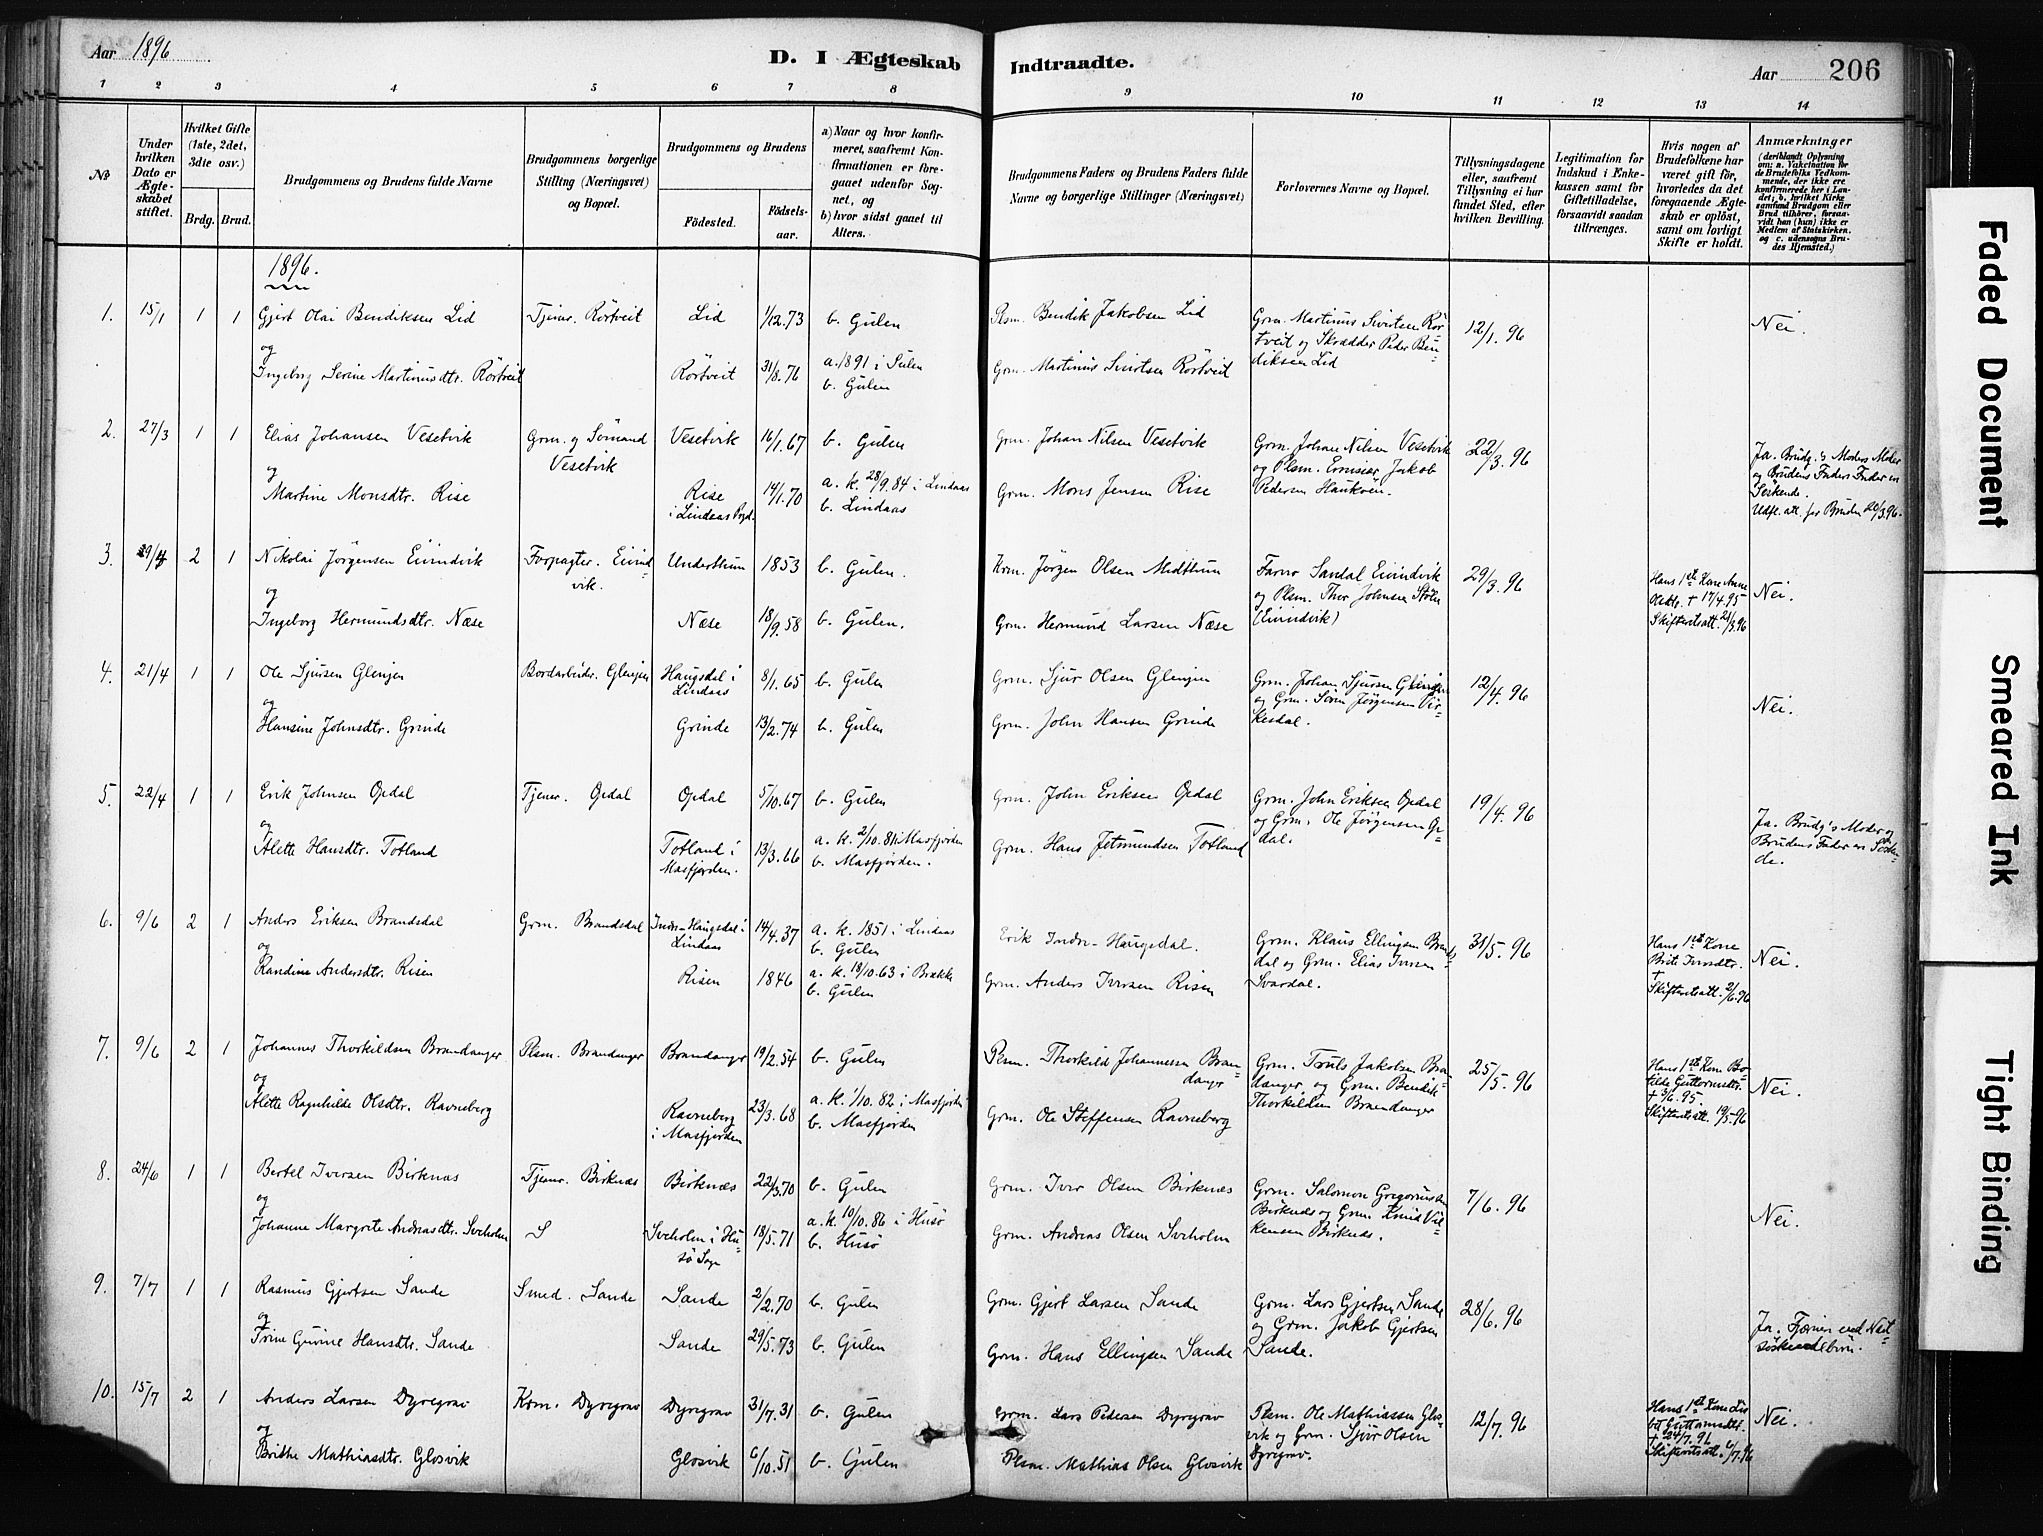 Aar 1896
D. I Ægteskab Indtraadte.
Aar 206
1 2 3 4 5 6 7 8 9 10 11 12 13 14
No
Under hvilken Dato er Ægteskabet stiftet.
Hvilket Gifte (1ste, 2det, 3die osv.)
Brdg. Brud.
Brudgommens og Brudens fulde Navne
Brudgommens borgerlige Stilling (Næringsvei) og Bopæl.
Brudgommens og Brudens
Fødested.
Fødselsaar.
a) Naar og hvor konfirmeret, saafremt Konfirmationen er foregaaet udenfor Sognet, og
b) hvor sidst gaaet til Alters.
Brudgommens Faders og Brudens Faders fulde Navne og borgerlige Stillinger (Næringsvei)
Forlovernes Navne og Bopæl.
Tillysningsdagene eller, saafremt Tillysning ei har fundet Sted, efter hvilken Bevilling.
Legitimation for Indskud i Enkekassen samt for Giftetilladelse, forsaavidt saadan tiltrænges.
Hvis nogen af Brudefolkene har været gift før, hvorledes da det foregaaende Ægteskab er opløst, samt om lovligt Skifte er holdt.
Anmærkninger
(deriblandt Oplysning om: a. Vakcination for de Brudefolks Vedkommende, der ikke ere konfirmerede her i Landet; b. hvilket Kirkesamfund Brudgom eller Brud tilhører, forsaavidt han (hun) ikke er Medlem af Statskirken. og c. udensogns Brudes Hjemsted.)
1896.
1. 15/1 1 1 Gjert Olai Bendiksen Lid Tjener. Rörtveit Lid 1/12.73 b. Gulen Plsm. Bendik Jakobsen Lid Grm. Martinus Sivertsen Rörtveit og Skrædder Peder Bendiksen Lid 12/1.96 Nei.
og
Ingeborg Serine Martinusdtr. Rörtveit Rörtveit 31/8.76 a. 1891 i Sulen b. Gulen Grm. Martinus Sivertsen Rörtveit
2. 27/3 1 1 Elias Johansen Vesetvik Grm. og Sömand Vesetvik Vesetvik 16/1.67 b. Gulen Grm. Johan Nilsen Vesetvik Grm. Johan Nilsen Vesetvik og Plsm. Jakob Pedersen 22/3.96 Ja. Brudg.'s Moders Moder og Brudens Faders Fader er Söskende. Udfl. att. for Bruden 20/3.96.
og
Martine Monsdtr. Rise Rise i Lindaas Prgd. 14/1.70 a. k. 28/9.84 i Lindaas b. Lindaas Grm. Mons Jensen Rise
3. 29/4 2 1 Nikolai Jörgensen Eivindvik Forpagter. Eivindvik. Underthun 1853 b. Gulen. Krm. Jörgen Olsen Midthun Sandal Eivindvik og Plsm. Thor Johnsen (Eivindvik) 29/3.96 Hans 1ste Kone Anne Olsdtr. † 17/4.95 Skifteretsatt. 21/3.96 Nei.
og
Ingeborg Hermundsdtr. Næse Næse 18/9.58 b. Gulen. Grm. Hermund Larsen Næse
4. 21/4 1 1 Ole Sjursen Glenjen Bordarbeider. Glenjen Haugsdal i Lindaas 8/1.65 b. Gulen Grm. Sjur Olsen Glenjen Grm. Johan Sjursen Glenjen og Grm. Sörin Jörgensen Virkesdal. 12/4.96 Nei.
og
Hansine Johnsdtr. Grinde Grinde 13/2.74 b. Gulen Grm. John Hansen Grinde
5. 22/4 1 1 Erik Johnsen Opdal Tjener. Opdal Opdal 5/10.67 b. Gulen Grm. John Eriksen Opdal Grm. John Eriksen Opdal og Grm. Ole Jörgensen Opdal. 19/4.96 Ja. Brudg's Moder og Brudens Fader er Söskende.
og
Alette Hansdtr. Totland Totland i Masfjorden. 13/3.66 a. k. 2/10.81 i Masfjorden b. Masfjorden. Grm. Hans Jetmundsen Totland
6. 9/6 2 1 Anders Eriksen Brandsdal Grm. Brandsdal Indre-Haugsdal i Lindaas 14/4.37 a. k. 1851 i Lindaas b. Gulen Erik Indre-Haugsdal. Grm. Klaus Ellingsen Brandsdal og Grm. Elias Iversen Svardal. 31/5.96 Hans 1ste Kone Brite Iversdtr. † Skifteretsatt. 2/6.96 Nei.
og
Randine Andersdtr. Risen Risen 1846 a. k. 18/10.63 i Brække b. Gulen Grm. Anders Iversen Risen
7. 9/6 2 1 Johannes Thorkildsen Brandanger Plsm. Brandanger Brandanger 19/2.54 b. Gulen Plsm. Thorkild Johannessen Brandanger Grm. Truls Jakobsen Brandanger og Grm. Bendik Thorkildsen Brandanger 25/5.96 Hans 1ste Kone Botilde Guttormsdtr. † 3/6.95. Skifteretsatt. 19/5.96 Nei.
og
Alette Ragnhilde Olsdtr. Ravneberg Ravneberg i Masfjorden 23/3.68 a. k. 1/10.82 i Masfjorden b. Masfjorden Grm. Ole Steffensen Ravneberg
8. 24/6 1 1 Bertel Iversen Birknæs Tjener. Birknæs Birknæs 22/3.70 b. Gulen Grm. Iver Olsen Birknæs Grm. Salomon Gregoriussen Birknæs og Grm. Knud Birknæs. 7/6.96 Nei.
og
Johanne Margrete Andreasdtr. Sveholm Sveholm i Husö Sogn 18/5.71 a. k. 10/10.86 i Husö b. Husö Grm. Andreas Olsen Sveholm
9. 7/7 1 1 Rasmus Gjertsen Sande Smed. Sande Sande 2/2.70 b. Gulen Grm. Gjert Larsen Sande Grm. Lars Gjertsen Sande og Grm. Jakob Gjertsen Sande. 28/6.96 Ja. Fjernere end Næstsöskendebörn.
og
Trine Gurine Hansdtr. Sande Sande 29/5.73 b. Gulen Grm. Hans Ellingsen Sande
10. 15/7 2 1 Anders Larsen Dyregrov Krm. Dyregrov Dyregrov 31/7.31 b. Gulen Grm. Lars Pedersen Dyregrov Plsm. Ole Mathiassen Glosvik og Grm. Sjur Olsen Dyregrov. 12/7.96 Hans 1ste Kone Lisbet Guttormsdtr. † 24/7.96 Skifteretsatt. 6/7.96 Nei.
og
Brithe Mathiasdtr. Glosvik Glosvik 6/10.51 b. Gulen Plsm. Mathias Olsen Glosvik
Faded Document
Smeared Ink
Tight Binding